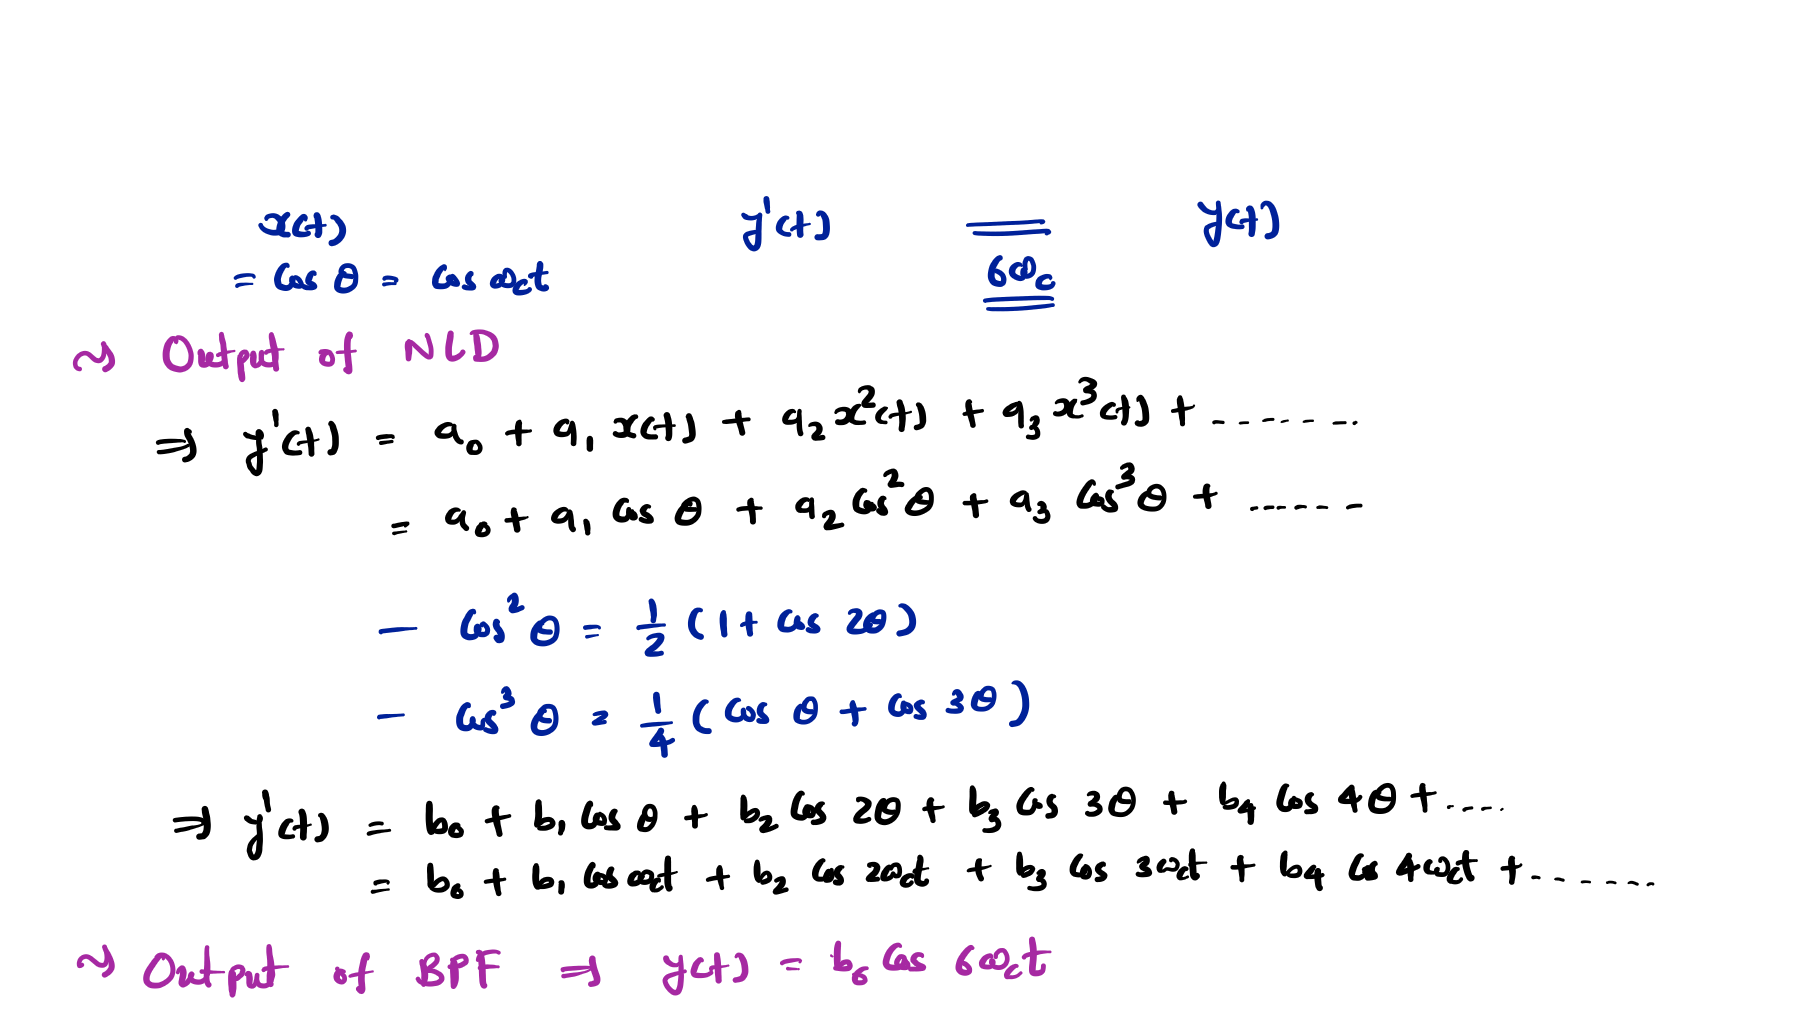 x(t) y'(t) y(t)
= Cos θ = Cos ω_c t 6ω_c
~> Output of NLD
⇒ y'(t) = a₀ + a₁ x(t) + a₂ x²(t) + a₃ x³(t) + ........
= a₀ + a₁ Cos θ + a₂ Cos² θ + a₃ Cos³ θ + ......
– Cos² θ = 1/2 (1 + Cos 2θ)
– Cos³ θ = 1/4 (Cos θ + Cos 3θ)
⇒ y'(t) = b₀ + b₁ Cos θ + b₂ Cos 2θ + b₃ Cos 3θ + b₄ Cos 4θ + ....
= b₀ + b₁ Cos ω_c t + b₂ Cos 2ω_c t + b₃ Cos 3ω_c t + b₄ Cos 4ω_c t + .......
~> Output of BPF ⇒ y(t) = b₆ Cos 6ω_c t